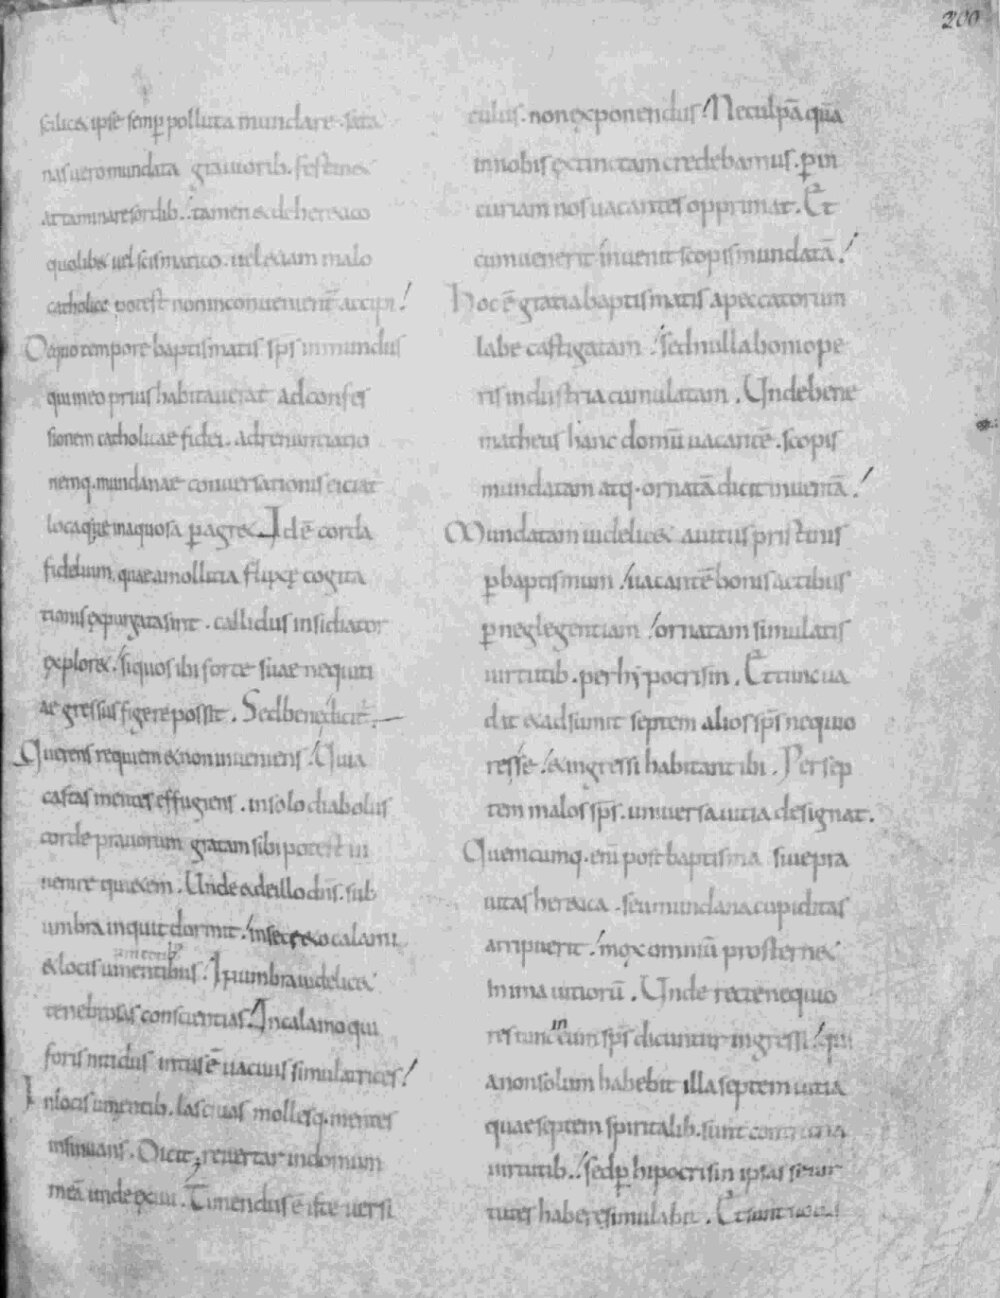 200
scilic& ipse semꝑ polluta mundare. sata
nas uero mundata grauiorib. festinet
attaminare sordib.; tamen & de heretico
quolib& uel scismatico. uel etiam malo
catholico potest non inconuenient̄ accipi;
Quo tempore baptismatis sp̄s inmundus
qui in eo prius habitauerat ad confes
sionem catholicae fidei. ad renunciatio
nemq. mundanae conuersationis eiciat̄
loca que inaquosa ꝑagr&. Id ē corda
fidelium, quae a mollitia fluxę cogita
tionis expurgata sint. callidus insidiator
explor&. si quos ibi forte suae nequiti
ae gressus figere possit. Sed bene dicit̄.
Querens requiem & non inueniens; Quia
castas mentes effugiens. in solo diabolus
corde prauorum gratam sibi potest in
uenire quietem. Unde & de illo dn̄s. sub
umbra inquit dormit. in secr&o calami
& locis umentibus; In umbra uidelic&
tenebrosas conscientias. In calamo qui
foris nitidus intus ē uacuus simulatrices;
In locis umentib. lasciuas mollesq. mentes
insinuans. Dicit, reuertar in domum
meā unde exiui. Timendus ē iste uersi
culus. non exponendus; Ne culpā quā
in nobis extinctam credebamus. ꝑ in
curiam nos uacantes opprimat. Et
cum uenerit inuenit scopis mundatā;
Hoc ē gratia baptismatis a peccatorum
labe castigatam. sed nulla boni ope
ris industria cumulatam. Unde bene
matheus hanc domū uacantē. scopis
mundatam atq. ornatā dicit inuentā;
Mundatam uidelic& a uitiis pristinis
ꝑ baptismum. uacantē bonis actibus
ꝑ neglegentiam. ornatam simulatis
uirtutib. per hypocrisin. Et tunc ua
dit & adsumit septem alios sp̄s nequio
res se. & ingressi habitant ibi. Per sep
tem malos sp̄s. uniuersa uitia designat.
Quemcumq. enī post baptisma siue pra
uitas heretica. seu mundana cupiditas
arripuerit. mox omniū prostern&
in ima uitiorū. Unde recte nequio
res tunc in eum sp̄s dicuntur ingressi. qui
a non solum habebit illa septem uitia
quae septem spiritalib. sunt contraria
uirtutib.; sed ꝑ hipocrisin ipsas se uir
tutes habere simulabit. Et sunt